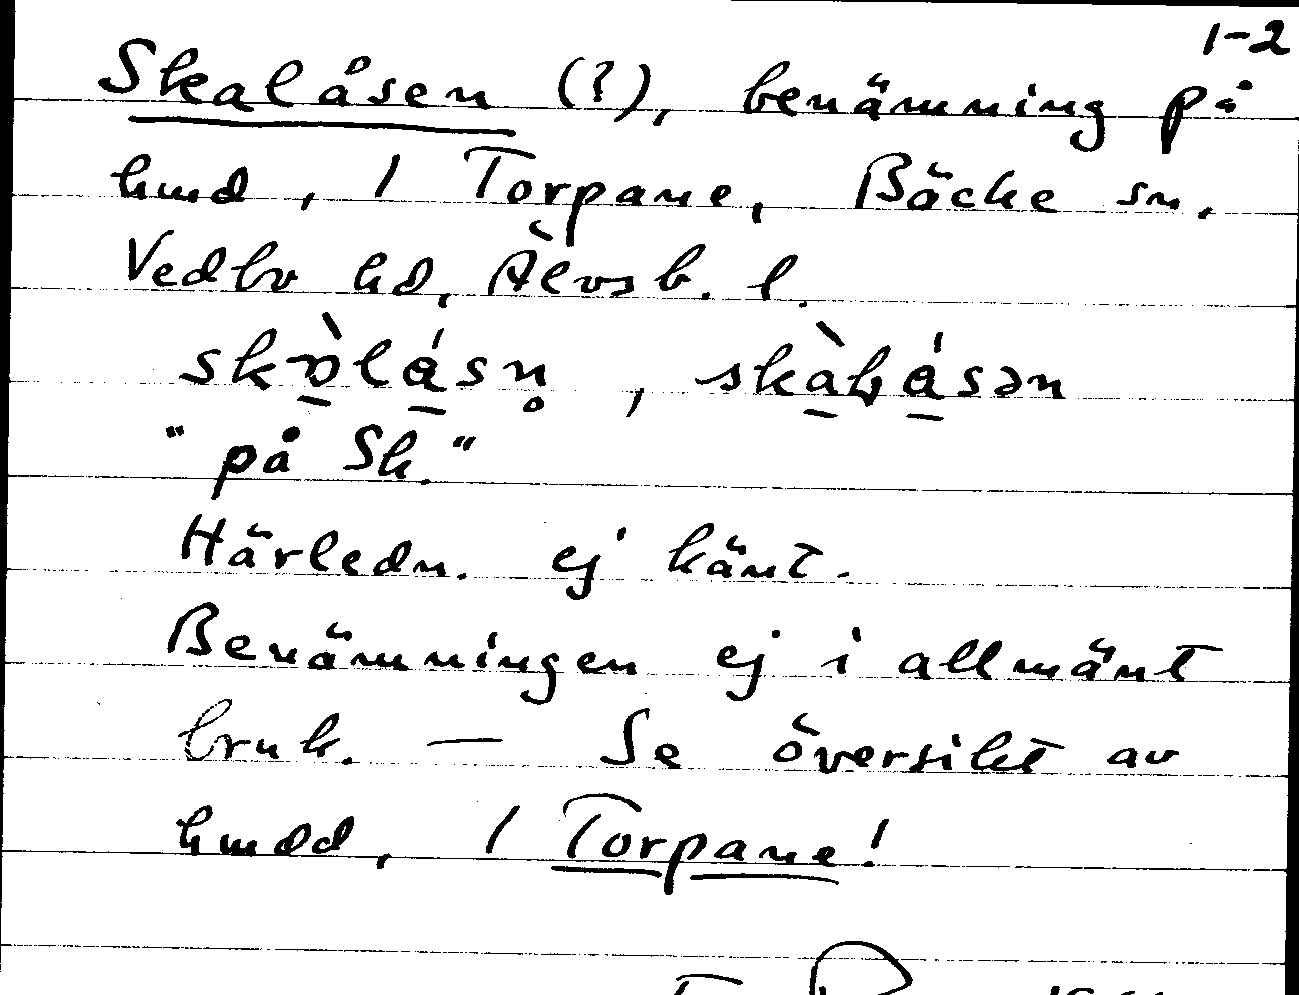 1-2
Skalåsen (?), benämning på
hmd, 1 Torpane, Bäcke sn,
Vedbo hd, Älvsb. l.
skɒ̀lásn̥, skàlásən
"på Sk."
Härledn. ej känt.
Benämningen ej i allmänt
bruk. — Se översikt av
hmdd, 1 Torpane!